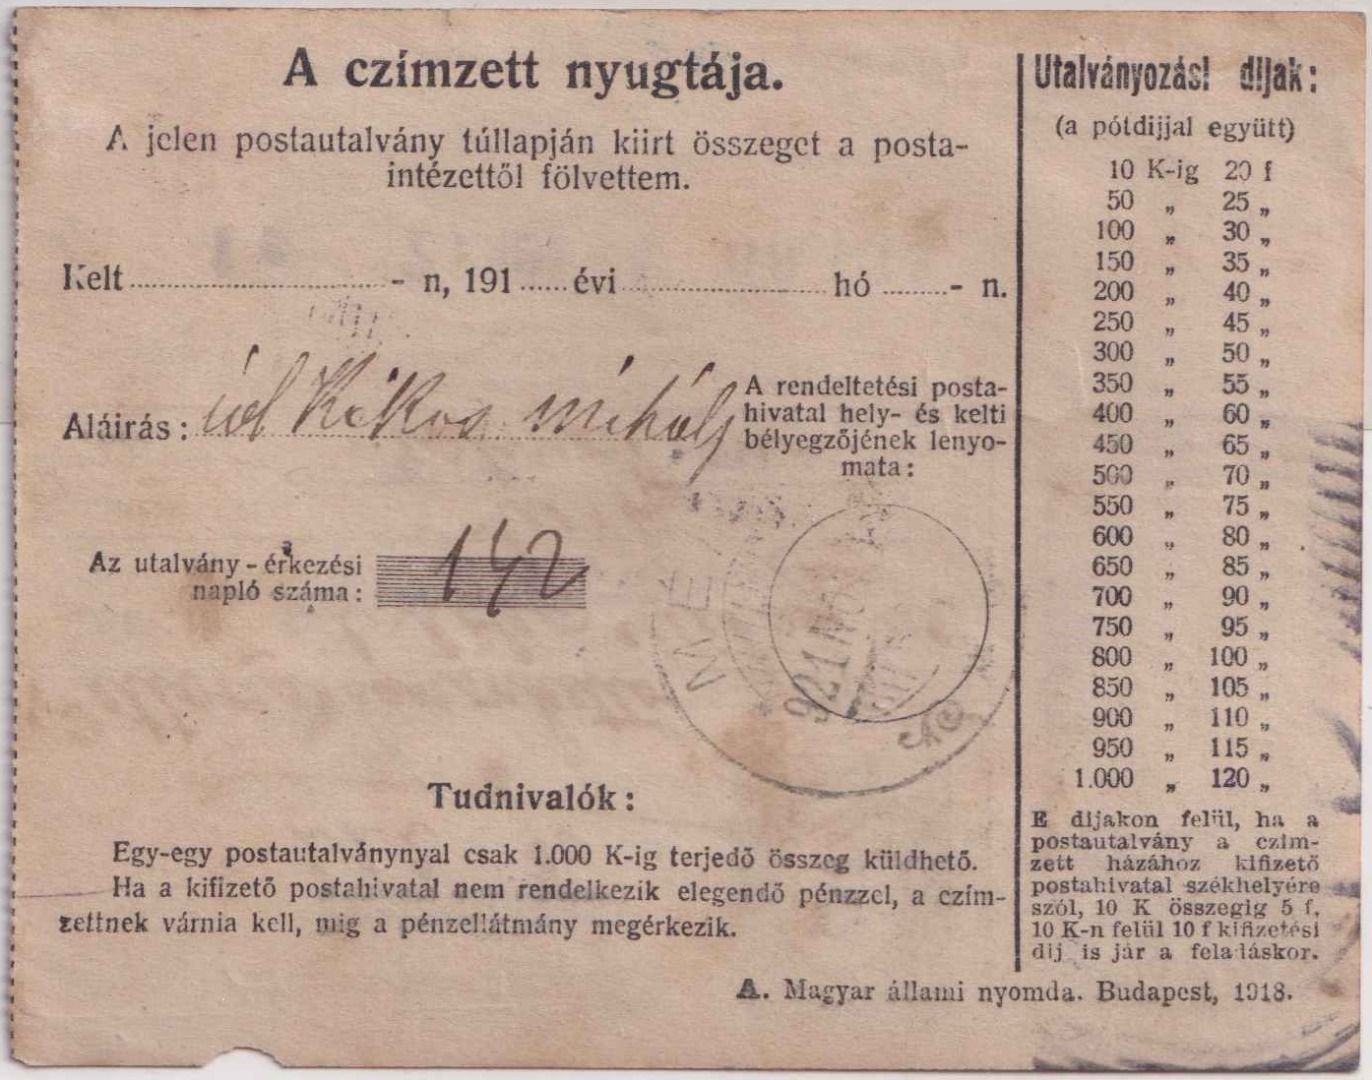 A czímzett nyugtája.
A jelen postautalvány túllapján kiirt összeget a posta-
intézettől fölvettem.
Kelt - n, 191 évi hó - n.
Aláirás: id Kékos mihály
A rendeltetési posta-
hivatal hely- és kelti
bélyegzőjének lenyo-
mata:
Az utalvány - érkezési
napló száma: 142
921 NOV
Tudnivalók:
Egy-egy postautalványnyal csak 1.000 K-ig terjedő összeg küldhető.
Ha a kifizető postahivatal nem rendelkezik elegendő pénzzel, a czím-
zettnek várnia kell, mig a pénzellátmány megérkezik.
Utalványozási dijak:
(a pótdijjal együtt)
10 K-ig 20 f
50 „ 25 „
100 „ 30 „
150 „ 35 „
200 „ 40 „
250 „ 45 „
300 „ 50 „
350 „ 55 „
400 „ 60 „
450 „ 65 „
500 „ 70 „
550 „ 75 „
600 „ 80 „
650 „ 85 „
700 „ 90 „
750 „ 95 „
800 „ 100 „
850 „ 105 „
900 „ 110 „
950 „ 115 „
1.000 „ 120 „
E dijakon felül, ha a
postautalvány a czim-
zett házához kifizető
postahivatal székhelyére
szól, 10 K összegig 5 f,
10 K-n felül 10 f kifizetési
dij is jár a feladáskor.
A. Magyar állami nyomda. Budapest, 1918.